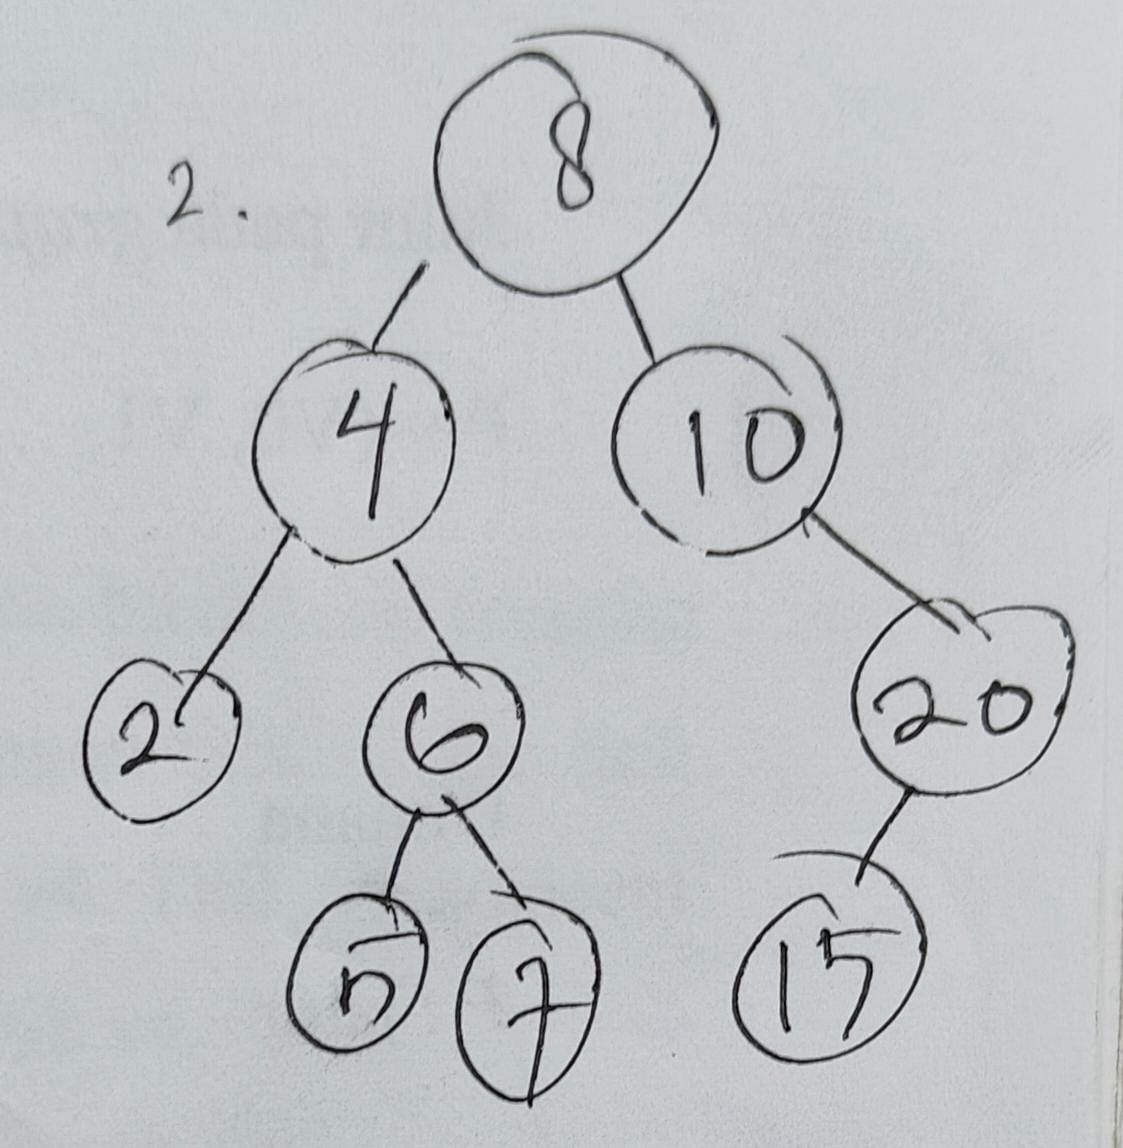 8
2.
4 10
2 6 20
5 7 15